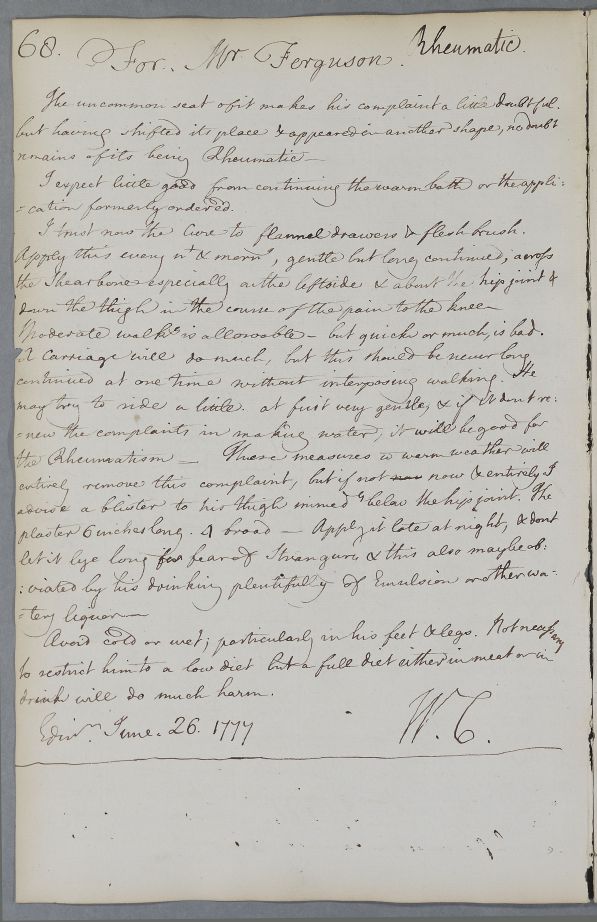 68.
For Mr Ferguson. Rheumatic.
The uncommon seat of it makes his complaint a little doubtful.
but having shifted its place & appeared in another shape, no doubt
remains of its being Rheumatic —
I expect little good from continuing the warm bath or the appli:
= cation formerly ordered.
I trust now the Cure to flannel drawers & flesh brush.
Apply this every nt & morng, gentle but long continued, across
the Sharebones especially on the left side & about the hip joint &
down the thigh in the course of the pain to the knee —
Moderate walkg is allowable — but quick or much, is bad.
A Carriage will do much, but this should be never long
continued at one time without interposing walking. He
may try to ride a little. at first very gentle, & if it dont re:
= new the complaints in making water, it will be good for
the Rheumatism — These measures w warm weather will
entirely remove this complaint, but if not now & entirely I
advise a blister to his thigh immedy below the hip joint. The
plaster 6 inches long. 4 broad — Apply it late at night, & dont
let it lye long for fear of Strangury & this also may be ob:
: viated by his drinking plentifully of Emulsion or other wa-
-tery liquor —
Avoid cold or wet; particularly in his feet & legs. Not necessary
to restrict him to a low diet but a full diet either in meat or in
drink will do much harm.
Edinr. June. 26. 1777 W. C.